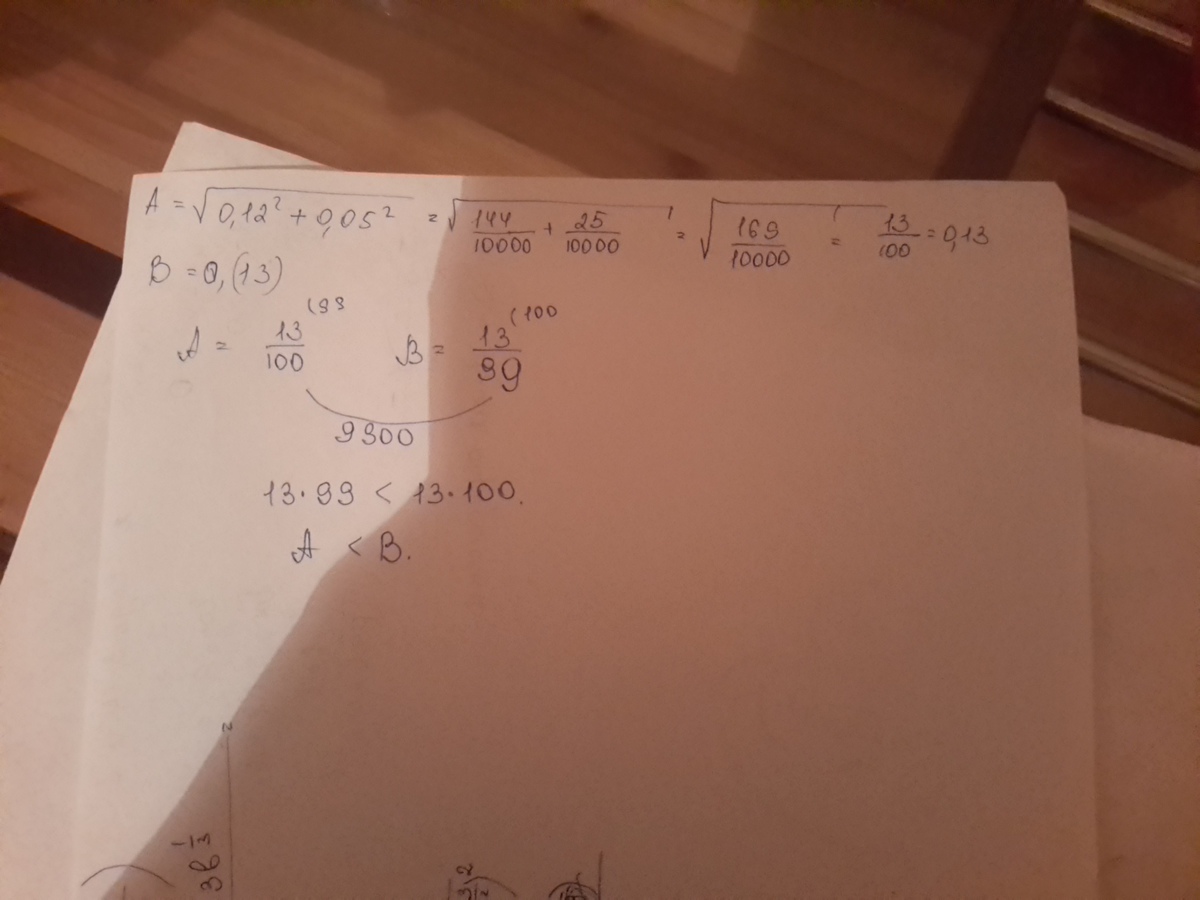 A = √0,12² + 0,05² = √144/10000 + 25/10000 = √169/10000 = 13/100 = 0,13
B = 0,(13)
A = 13/100 (99 B = 13/99 (100
9900
13·99 < 13·100.
A < B.